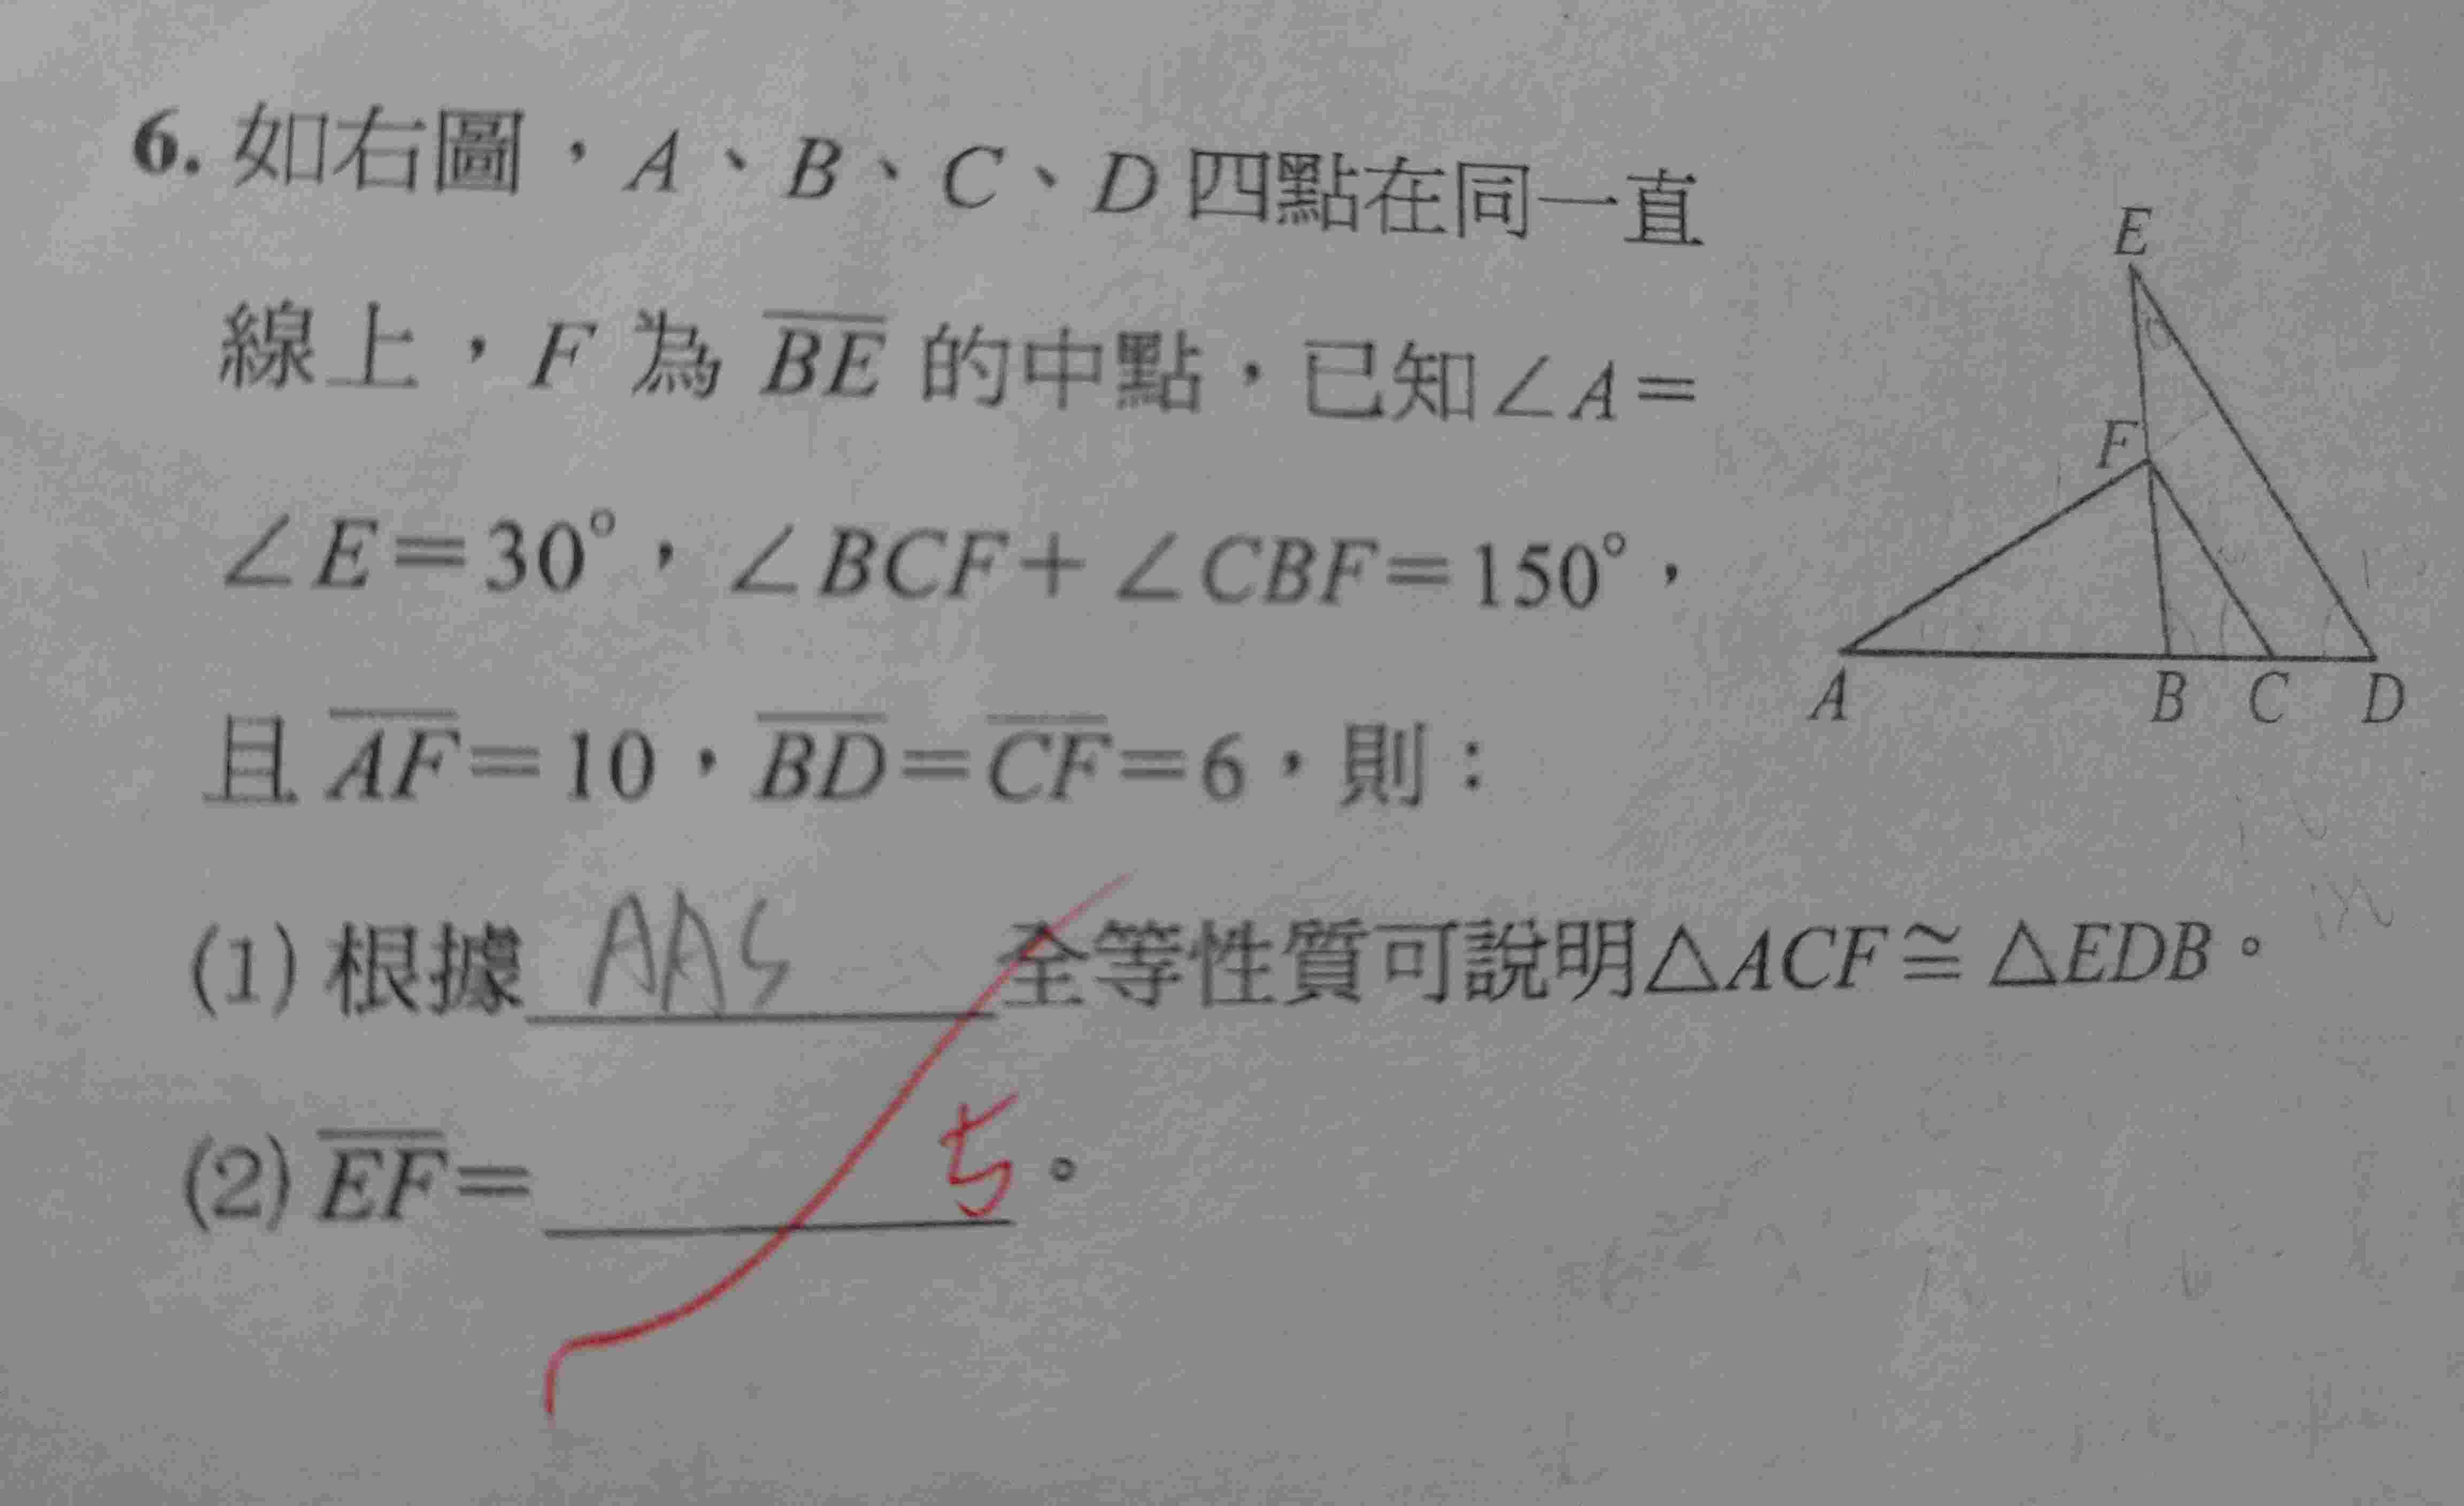 6. 如右圖，A、B、C、D 四點在同一直
線上，F 為 BE 的中點，已知∠A=
∠E=30°，∠BCF+∠CBF=150°，
且 AF=10，BD=CF=6，則：
(1) 根據 AAS 全等性質可說明△ACF≅△EDB。
(2) EF= 5。
E
F
A B C D